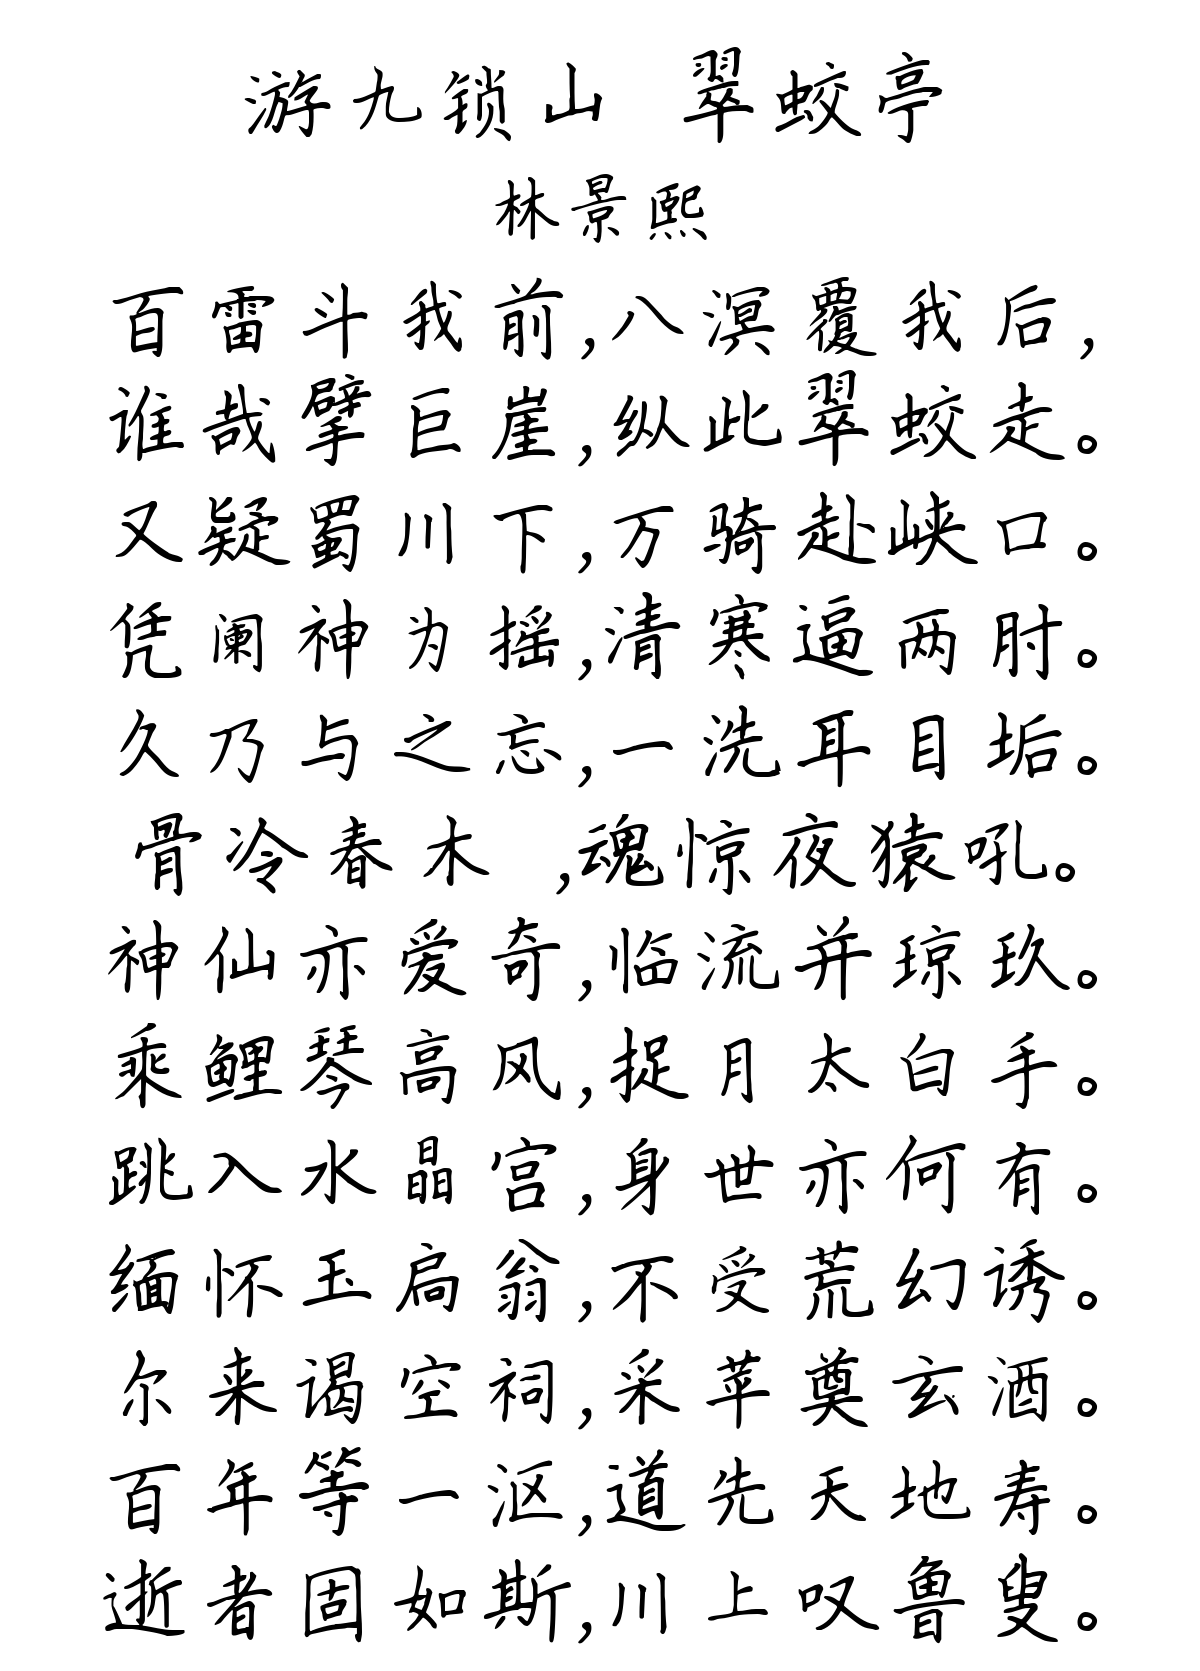 游九锁山 翠蛟亭
林景熙
百雷斗我前,八溟覆我后,
谁哉擘巨崖,纵此翠蛟走。
又疑蜀川下,万骑赴峡口。
凭阑神为摇,清寒逼两肘。
久乃与之忘,一洗耳目垢。
骨冷春木 ,魂惊夜猿吼。
神仙亦爱奇,临流并琼玖。
乘鲤琴高风,捉月太白手。
跳入水晶宫,身世亦何有。
缅怀玉扃翁,不受荒幻诱。
尔来谒空祠,采苹奠玄酒。
百年等一沤,道先天地寿。
逝者固如斯,川上叹鲁叟。